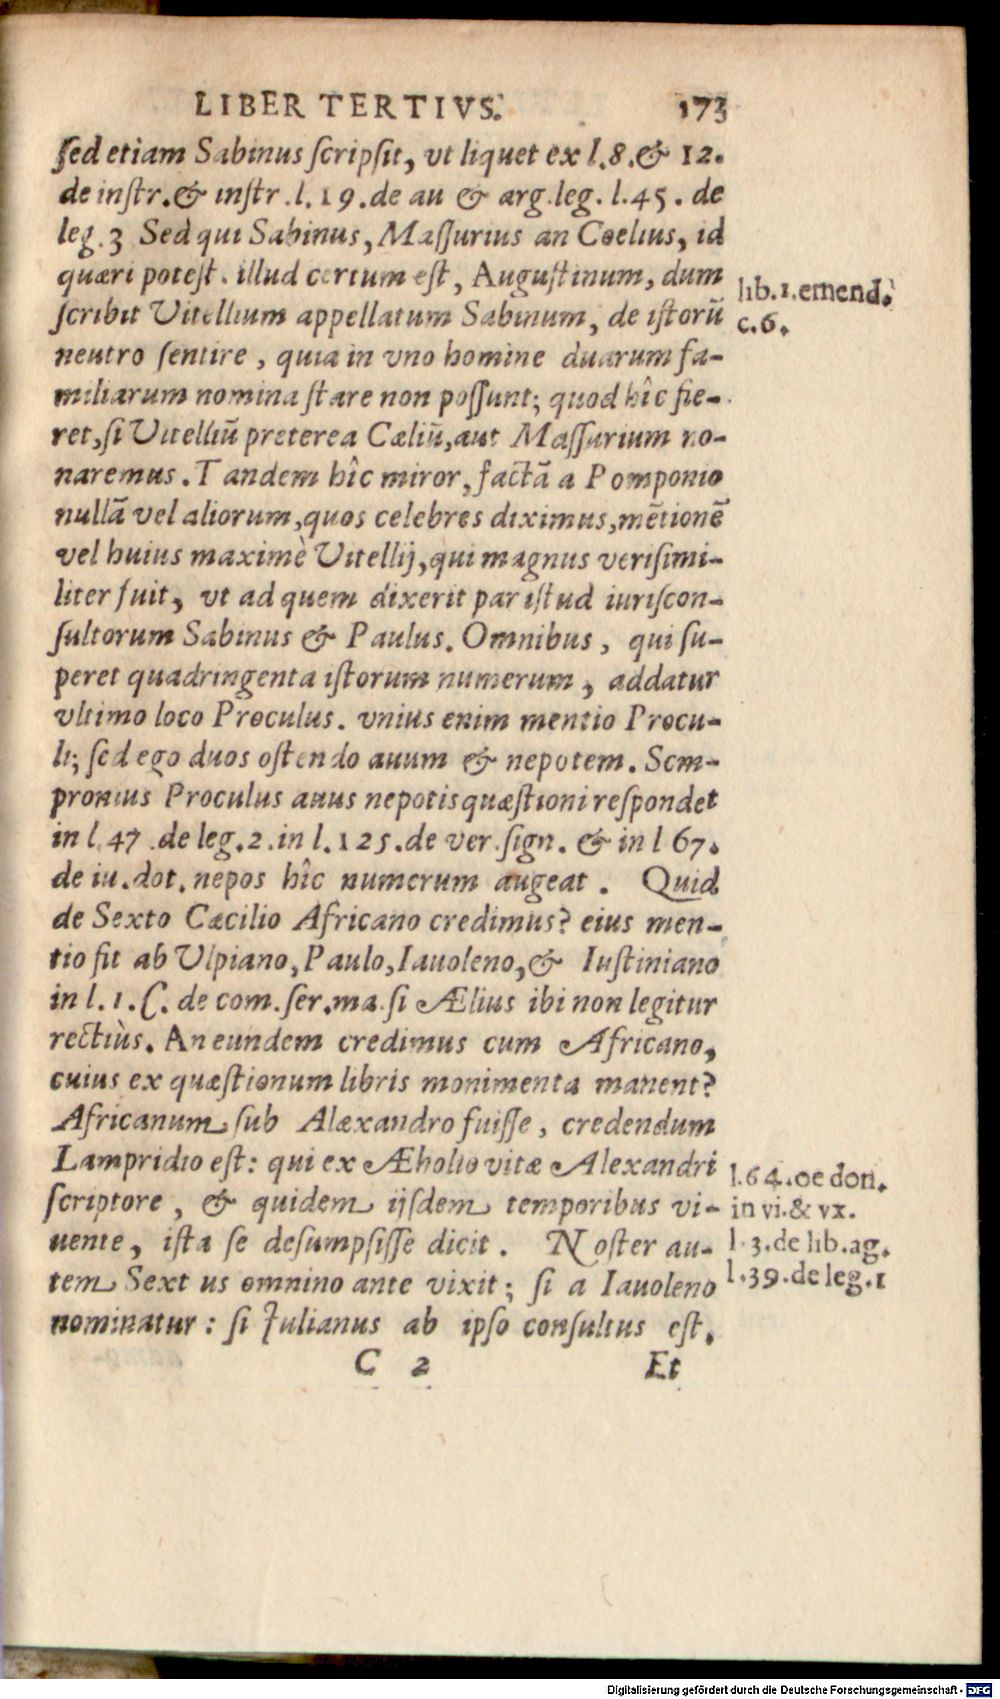 LIBER TERTIVS. 173
sed etiam Sabinus scripsit, vt liquet ex l.8.& 12.
de instr.& instr.l.19.de au & arg.leg. l.45. de
leg.3 Sed qui Sabinus, Massurius an Coelius, id
quæri potest. illud certum est, Augustinum, dum
scribit Vitellium appellatum Sabinum, de istorū
neutro sentire, quia in vno homine duarum fa-
miliarum nomina stare non possunt; quod hîc fie-
ret, si Vitelliū preterea Cæliū, aut Massurium no-
naremus. Tandem hîc miror, factā a Pomponio
nullā vel aliorum, quos celebres diximus, mētionē
vel huius maximè Vitellij, qui magnus verisimi-
liter fuit, vt ad quem dixerit par istud iuriscon-
sultorum Sabinus & Paulus. Omnibus, qui su-
peret quadringenta istorum numerum, addatur
vltimo loco Proculus. vnius enim mentio Procu-
li; sed ego duos ostendo auum & nepotem. Sem-
pronius Proculus auus nepotis quæstioni respondet
in l.47.de leg.2.in l.125.de ver.sign. & in l 67.
de iu.dot.nepos hîc numerum augeat. Quid
de Sexto Cæcilio Africano credimus? eius men-
tio fit ab Vlpiano, Paulo, Iauoleno, & Iustiniano
in l.1.C. de com.ser.ma.si Ælius ibi non legitur
rectiùs. An eundem credimus cum Africano,
cuius ex quæstionum libris monimenta manent?
Africanum sub Alæxandro fuisse, credendum
Lampridio est: qui ex Æholio vitæ Alexandri
scriptore, & quidem ijsdem temporibus vi-
uente, ista se desumpsisse dicit. Noster au-
tem Sextus omnino ante vixit; si a Iauoleno
nominatur: si Iulianus ab ipso consultus est.
C 2 Et
lib.1.emend.
c.6.
l.64.de don.
in vi.& vx.
l.3.de lib.ag.
l.39.de leg.1
Digitalisierung gefördert durch die Deutsche Forschungsgemeinschaft - DFG